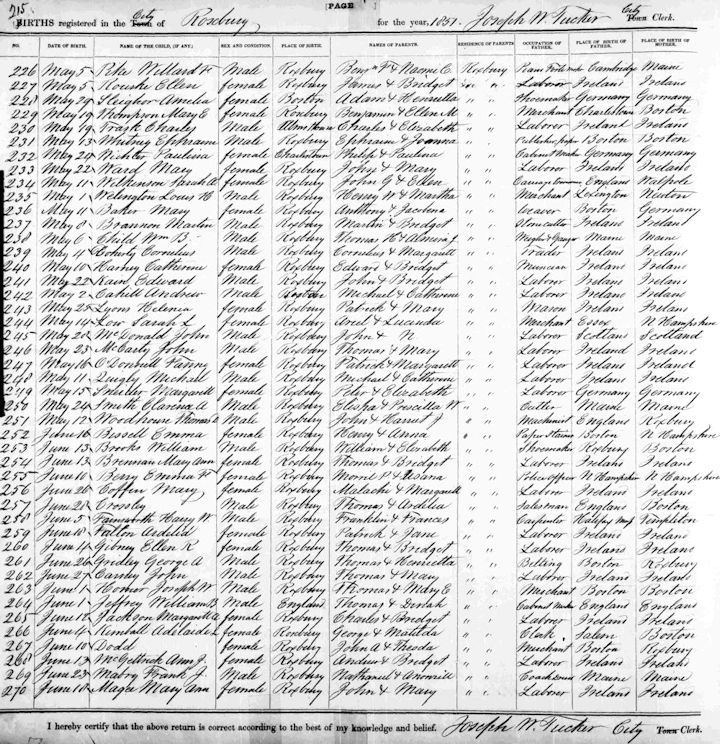 215
PAGE
BIRTHS registered in the City Town of Roxbury for the year, 1851. Joseph W. Tucker City Town Clerk.
NO. DATE OF BIRTH. NAME OF THE CHILD, (IF ANY.) SEX AND CONDITION. PLACE OF BIRTH. NAMES OF PARENTS. RESIDENCE OF PARENTS OCCUPATION OF FATHER. PLACE OF BIRTH OF FATHER. PLACE OF BIRTH OF MOTHER.
226 May 5 Willard F Male Roxbury Benj F & Naomi E Roxbury Cambridge Maine
227 May 5 Ellen female Roxbury James & Bridget " " Laborer Ireland Ireland
228 May 29 Amelia female Boston Adam & Henrietta " " Shoemaker Germany Germany
229 May 19 Thompson Mary E female Roxbury Benjamin & Ellen M " " Merchant Charlestown Boston
230 May 19 Charley Male Charles & Elizabeth " " Laborer Ireland Ireland
231 May 13 Ephraim Male Roxbury Ephraim & Joanna " " Boston Boston
232 May 29 Richter Paulina female Charlestown Philip & Paulina " " Cabinet Maker Germany Germany
233 May 22 Ward Mary female Roxbury John & Mary " " Laborer Ireland Ireland
234 May 11 Wilkinson Sarah E female Roxbury John G & Ellen " " England Walpole
235 May 1 Wellington Louis H Male Roxbury Henry W & Martha " " Merchant Lexington Newton
236 May 11 Baker Mary female Roxbury Anthony & Jacobena " " Weaver Boston Germany
237 May 8 Brannon Martin Male Roxbury Martin & Bridget " " Stonecutter Ireland Ireland
238 May 6 Child Wm B. Male Roxbury Thomas H & Almira J " " Maine Maine
239 May 4 Doherty Cornelius Male Roxbury Cornelius & Margarett " " Trader Ireland Ireland
240 May 10 Harney Catherine female Roxbury Edward & Bridget " " Musician Ireland Ireland
241 May 22 Kain Edward Male Roxbury John & Bridget " " Laborer Ireland Ireland
242 May 2 Cahill Andrew Male Roxbury Michael & Catherine " " Laborer Ireland Ireland
243 May 25 Lyons Helena female Roxbury Patrick & Mary " " Mason Ireland Ireland
244 May 14 Low Sarah L female Roxbury & Lucinda " " Merchant Essex N Hampshire
245 May 25 McDonald John Male Roxbury John & N " " Laborer Scotland Scotland
246 May 23 McCarty John Male Roxbury Thomas & Mary " " Laborer Ireland Ireland
247 May 16 O'Donnell Fanny female Roxbury Patrick & Margarett " " Laborer Ireland Ireland
248 May 11 Quigly Michael Male Roxbury Michael & Catherine " " Laborer Ireland Ireland
249 May 15 Margarett female Roxbury Peter & Elizabeth " " Laborer Germany Germany
250 May 24 Smith Clarence A Male Roxbury Elisha & Priscilla W " " Cutler Maine Maine
251 May 12 Woodhouse Thomas Male Roxbury John & Harriet J " " Machinist England Roxbury
252 June 16 Bissell Emma female Roxbury Henry & Anna " " Paper Stainer Boston N Hampshire
253 June 13 Brooks William Male Roxbury William & Elizabeth " " Shoemaker Roxbury Boston
254 June 13 Brennan Mary Ann female Roxbury Thomas & Bridget " " Laborer Ireland Ireland
255 June 10 Berry Emma F female Roxbury & Susana " " Police officer N Hampshire N Hampshire
256 June 26 Coffin Mary female Roxbury Malachi & Margarett " " Laborer Ireland Ireland
257 June 21 Crossley Male Roxbury Thomas & Ardelia " " Salesman England Boston
258 June 5 Farnsworth Harry W Male Roxbury Franklin & Frances " " Carpenter Halifax Templeton
259 June 18 Fallon Ardelia female Roxbury Patrick & Jane " " Laborer Ireland Ireland
260 June 4 Gibney Ellen R female Roxbury Thomas & Bridget " " Laborer Ireland Ireland
261 June 26 Gridley George A Male Roxbury Thomas & Henrietta " " Belting Boston Roxbury
262 June 27 John Male Roxbury Thomas & Mary " " Laborer Ireland Ireland
263 June 1 Homer Joseph W Male Roxbury Thomas & Mary E " " Merchant Boston Boston
264 June 1 Jeffrey William B Male England Thomas & Dinah " " Cabinet Maker England England
265 June 18 Jackson Margarett A female Roxbury Charles & Bridget " " Laborer Ireland Ireland
266 June 4 Kimball Adelaide L female Roxbury George & Matilda " " Clerk Salem Boston
267 June 10 Dodd female Roxbury John A & " " Merchant Boston Roxbury
268 June 13 McGettrick Ann J. female Roxbury Andrew & Bridget " " Laborer Ireland Ireland
269 June 23 Mabry Frank J Male Roxbury Nathaniel & " " Coachman Maine Maine
270 June 10 Magee Mary Ann female Roxbury John & Mary " " Laborer Ireland Ireland
I hereby certify that the above return is correct according to the best of my knowledge and belief. Joseph W. Tucker City Town Clerk.